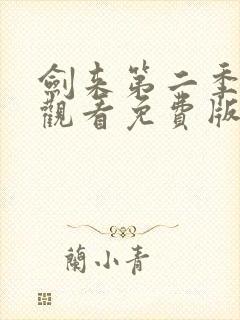 劍来第二季
觀看免費版
蘭小青